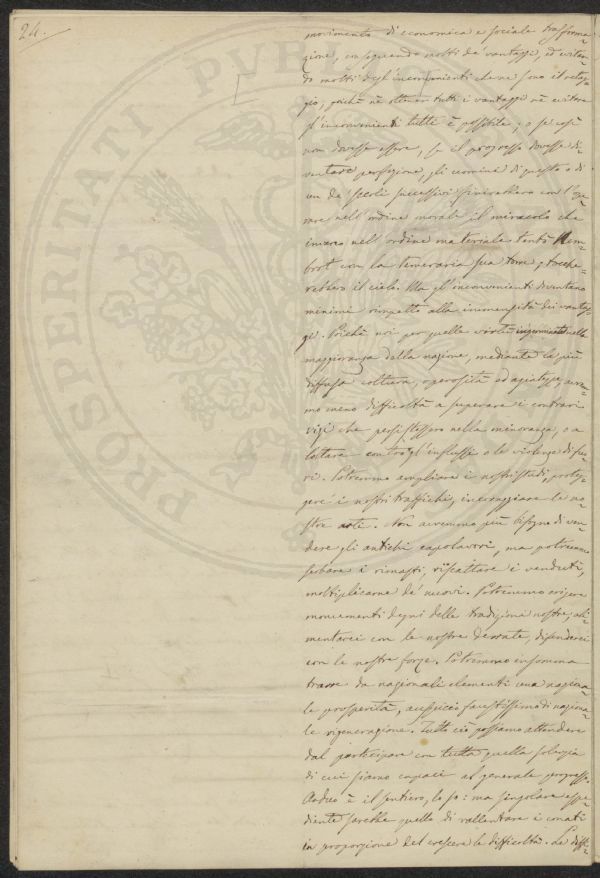 24.
movimento di economica e sociale trasforma-
zione, conseguendo molti de' vantaggi, ed evitan-
do molti degl'inconvenienti che ne sono il retag-
gio, poichè nè ottener tutti i vantaggi nè evitare
gl'inconvenienti tutti è possibile; o se così
non dovesse essere, se il progresso dovesse di-
ventare perfezione, gli uomini di questo o di
un de' secoli successivi finirebbero con l'ope-
rare nell'ordine morale il miracolo che
invano nell'ordine materiale tentò Nem-
brot con la temeraria sua torre, tocche-
rebbero il cielo. Ma gl'inconvenienti diventano
minimi rimpetto alla immensità dei vantag-
gi. Poichè noi per quelle virtù ingenerate nella
maggioranza della nazione, mediante la più
diffusa coltura, operosità ed agiatezza, avre-
mo meno difficoltà a superare i contrari
vizi che persistessero nella minoranza, o a
lottare contro gl'influssi o le violenze di fuo-
ri. Potremmo ampliare i nostri studi, proteg-
gere i nostri traffichi, incoraggiare le no-
stre arti. Non avremmo più bisogno di ven-
dere gli antichi capolavori, ma potremmo
serbare i rimasti, riscattare i venduti,
moltiplicarne de' nuovi. Potremmo erigere
monumenti degni delle tradizioni nostre, ali-
mentarci con le nostre derrate, difenderci
con le nostre forze. Potremmo insomma
trarre da nazionali elementi una naziona-
le prosperità, auspicio faustissimo di naziona-
le rigenerazione. Tutto ciò possiamo attendere
dal partecipare con tutta quella solerzia
di cui siamo capaci al generale progresso.
Arduo è il sentiero, lo so: ma singolare espe-
diente sarebbe quello di rallentare i conati
in proporzione del crescere le difficoltà. Le diffi-
PROSPERITATI PVBL